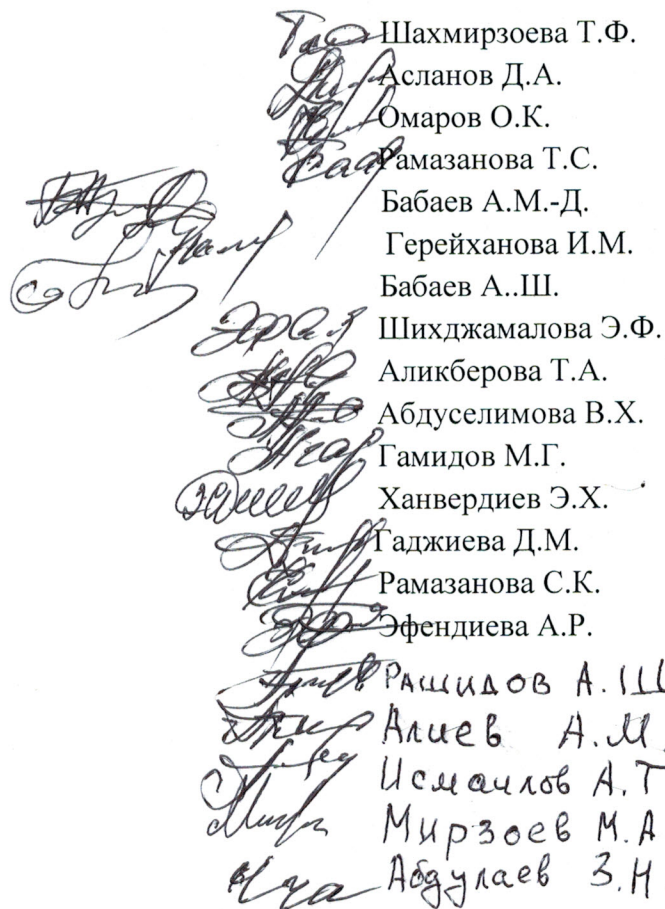 Шахмирзоева Т.Ф.
Асланов Д.А.
Омаров О.К.
Рамазанова Т.С.
Бабаев А.М.-Д.
Герейханова И.М.
Бабаев А..Ш.
Шихджамалова Э.Ф.
Аликберова Т.А.
Абдуселимова В.Х.
Гамидов М.Г.
Ханвердиев Э.Х.
Гаджиева Д.М.
Рамазанова С.К.
Эфендиева А.Р.
Рашидов А.Ш
Алиев А.М.
Исмаилов А.Т
Мирзоев М.А
Абдулаев З.Н